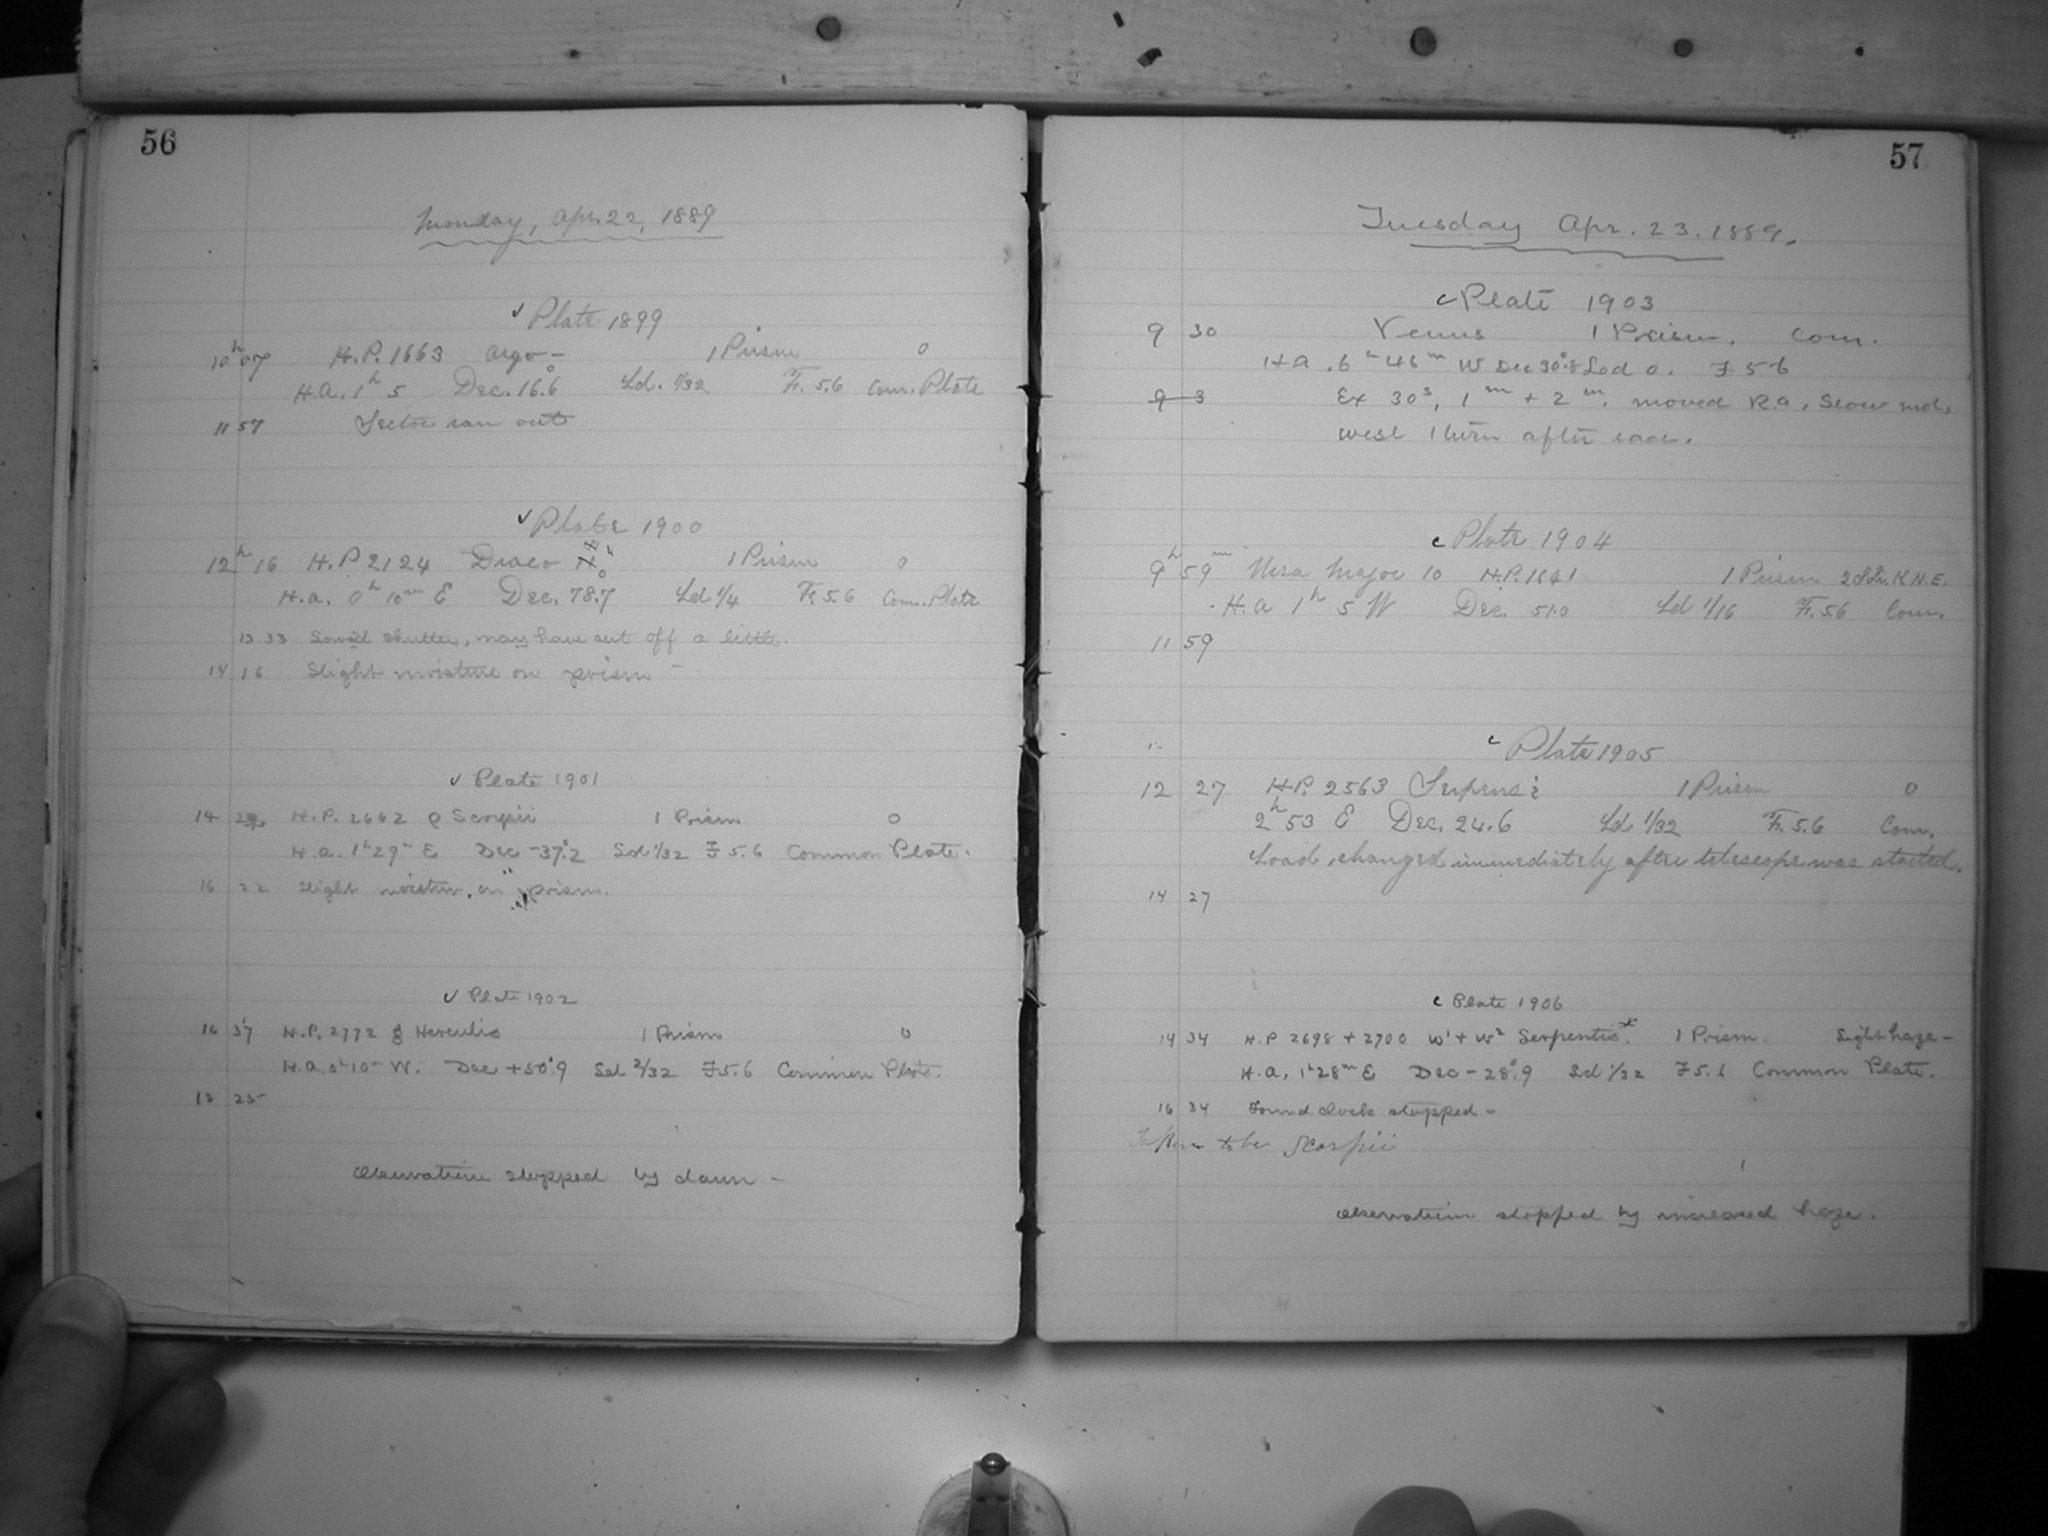 56
Monday, Apr. 22, 1889
✓ Plate 1899
10ʰ 07 H.P. 1663 Argo – 1 Prism 0
H.A. 1ʰ 5 Dec. 16.°6 Ld. 1/32 F. 5.6 Com. Plate
11 57 Sector ran out
✓ Plate 1900
12ʰ 16 H.P. 2124 Draco 1 Prism 0
H.A. 0ʰ 10ᵐ E Dec. 78.°7 Ld 1/4 F. 5.6 Com. Plate
13 33 shutter, may have cut off a little.
14 16 Slight moisture on prism –
✓ Plate 1901
14 H.P. 2662 Scorpii 1 Prism 0
H.A. 1ʰ 29ᵐ E Dec –37.°2 Ld 1/32 F 5.6 Common Plate.
16 22 Slight moisture on prism.
✓ Plate 1902
16 37 H.P. 2772 Herculis 1 Prism 0
H.A. 0ʰ 10ᵐ W. Dec +50.°9 2/32 F 5.6 Common Plate.
18 25
Observation stopped by dawn –
57
Tuesday Apr. 23. 1889.
Plate 1903
9 30 Venus 1 Prism. Com.
H.A. 6ʰ 46ᵐ W Dec 30.°8 Lod 0. F 5 6
9 3 Ex 30ˢ, 1ᵐ + 2ᵐ. moved R.A. Slow mo.
west 1 turn after each.
Plate 1904
9ʰ 59ᵐ Ursa Major 10 H.P. 1841 1 Prism K N.E.
H.A 1ʰ 5 W Dec. 51.0 Ld 1/16 F. 5.6 Com.
11 59
Plate 1905
12 27 H.P. 2563 Serpens 1 Prism 0
2ʰ 53 E Dec. 24.6 Ld 1/32 F. 5.6 Com.
Load changed immediately after telescope was started.
14 27
Plate 1906
14 34 H.P 2698 + 2700 w¹ + w² Serpentis.* 1 Prism. Slight haze –
H.A. 1ʰ 28ᵐ E Dec – 28.°9 Ld 1/32 F 5.6 Common Plate.
16 34 Found clock stopped –
Taken to be Scorpii
Observation stopped by increased haze.